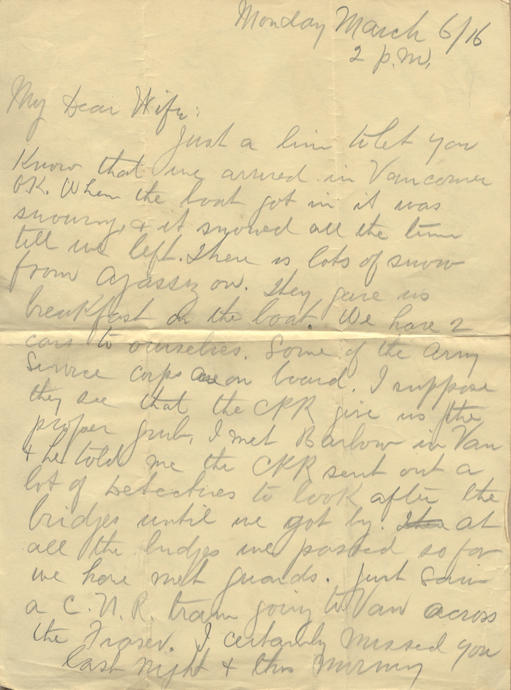 Monday March 6/16
2 p.m.
My Dear Wife:
Just a line to let you
know that we arrived in Vancouver
OK. When the boat got in it was
snowing, & it snowed all the time
till we left. There is lots of snow
from Agassiz on. They gave us
breakfast on the boat. We have 2
cars to ourselves. Some of the Army
Service corps are on board. I suppose
they see that the CPR give us the
proper grub. I met Barlow in Van
& he told me the CPR sent out a
lot of Detectives to look after the
bridges until we got by. at
all the bridges we passed so far
we have met guards. Just saw
a C.N.R. train going to Van across
the Fraser. I certainly missed you
last night & this morning